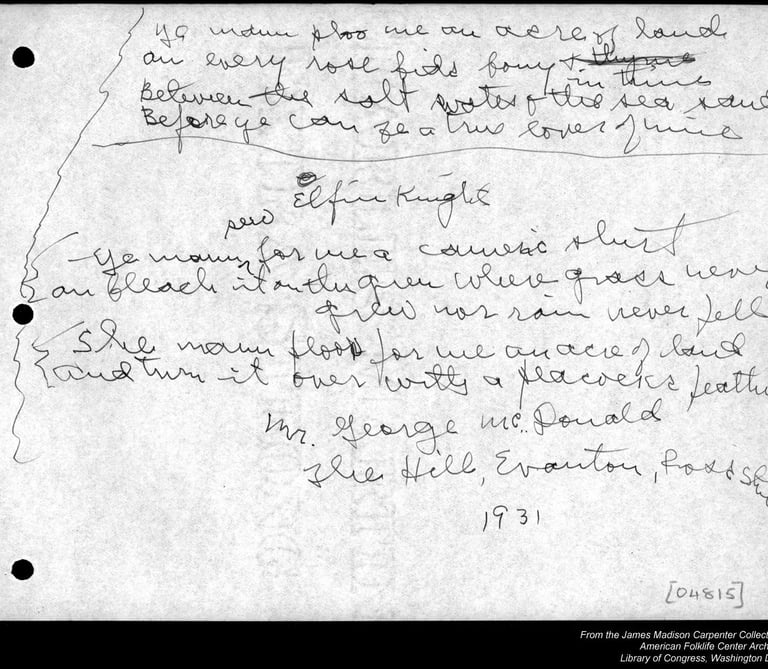 Ye maun ploo me an acre of land
an every rose fids bony
in thine
Between the salt water & the sea sand
Before ye can be a true lover of mine
Elfin Knight
sew
Ye maun for me a cameric shirt
an bleach it on the green where grass never
grew nor rain never fell
She maun ploo for me an acre of land
And turn it over with a peacocks feath
Mr. George Mc.Donald
The Hill, Evanton, Ross
1931
[04815]
From the James Madison Carpenter Collect
American Folklife Center Arch
Library of Congress, Washington D